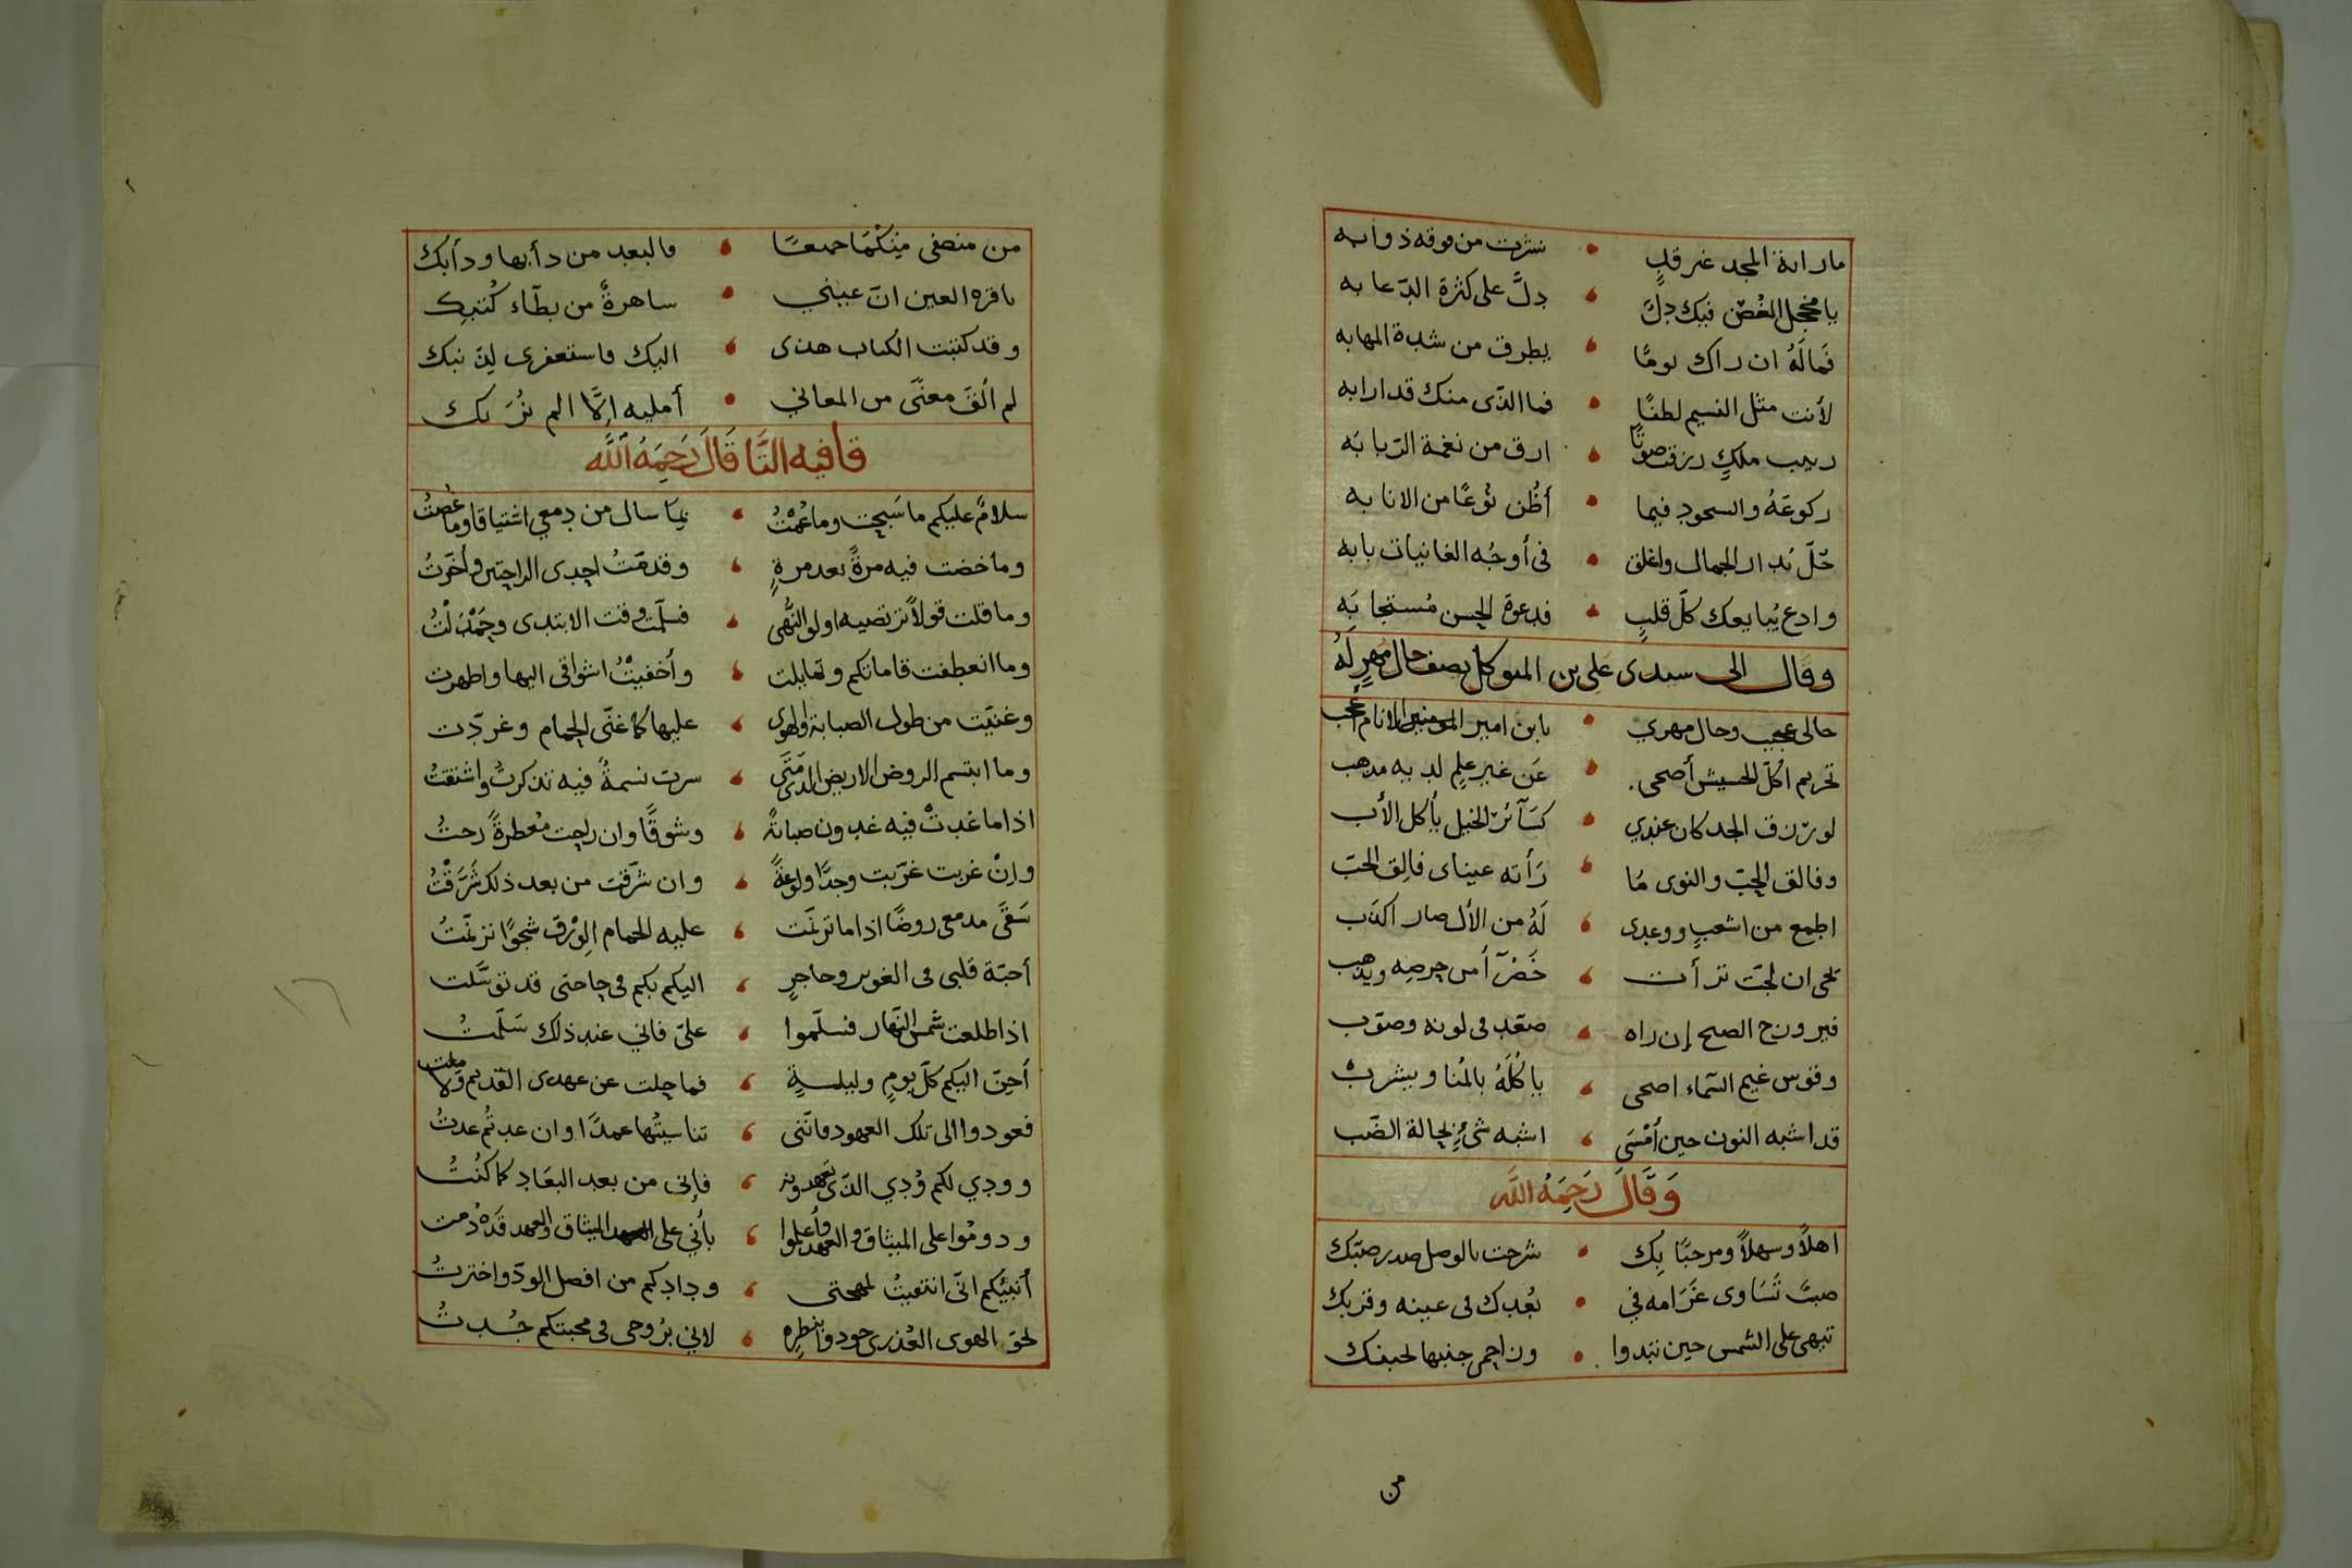 ما راية المجد غير قدٍ نشرت من فوقه ذوابه
يا مخجل الغصن فيك دلّ دلّ على كثرة الدعابه
فماله ان راك يومًا يطرق من شدة المهابه
لأنت مثل النسيم لطفًا فما الذى منك قد ارابه
ربيب ملكٍ رزقت صوتًا ارق من نغمة الربابه
ركوعَهُ والسجود فيما أظن نوعًا من الانابه
الجمال واغلق فى أوجُه الغانيات بابه
وادع يُبايعك كلّ قلبٍ فدعوة الحسن مُستجابَه
وقال الى سيدى على بن المتوكل يصف حال مُهرٍ لَهُ
حالى عجيب وحال مهري يابن امير المومنين الانام أعجب
تحريم اكل الحشيش أضحى عَن غير علم لديه مذهب
لو رزق الجد كان عندي كسَآئر الخيل يأكل الأب
وفالق الحبّ والنوى مُا رَأته عيناى فالق الحب
اطمع من اشعبٍ ووعدى لَهُ من الأل صار اكذَب
ان لجّت ترأت خَضرآ أمن حرصه ويذهب
فيروزج الصبح إن راه صعّد فى لونه وصوّب
وقوس غيم السّماء اضحى ياكُلَهُ بالمُنا ويشرب
قد اشبه النون حين أمْسَى اشبه شىءٍ بحالة الضّب
وَقَالَ رَحِمَهُ اللَّه
اهلاً وسهلاً ومرحبًا بِك شرحت بالوصل صدر صبّك
صبّ تَسَاوى غَرَامه في بُعدك فى عينه وقربك
تيهى على الشمس حين تبدوا وزاحمى جنبها لجنبك
من
من منصفى مِنكُمَا جميعًا فالبعد من دأبها ودأبك
ياقرة العين انّ عيني ساهرةً من بطآء كُتبِك
وقد كتبت الكتاب هذى اليك فاستغفرى لِذنبك
لم ألقَ معنًى من المعاني أمليه إلَّا الم تُرَ بك
قافيه التَّا قَالَ رَحِمَهُ اللَّه
سلامٌ عليكم ما سَبحت وما عُمْتُ بمَا سال من دمعي اشتياقا وما غُصتُ
وما خضت فيه مرةً بعد مرةٍ وقدمتُ احدى الراحتين وأخّرتُ
وما قلت قولاً ترتضيه اولو النُّهى فسلّمت وقت الابتدى وحَمْدَلْتُ
وما انعطفت قاماتكم وتمايلت وأخفيتُ اشواقى اليها واظهرت
وغنيّت من طول الصبابة والهوى عليها كما غنّى الحمام وغردّت
وما ابتسم الروض الاريض الذى مَتَى سرت نسمةٌ فيه تذكرتُ واشتقتُ
اذا ما غدتْ فيه غدوت صبابةً وشوقًا وان راحت مُعطرةً رحتُ
وإنْ غربت غرّبت وجدًا ولوعةً وان شرّقت من بعد ذلك شَرَّقْتُ
سَقَى مدمعى روضًا اذا ما ترنّمت عليه الحمام الوُرْق شجوًا ترنّمتُ
أحبّة قلبى فى الغوير وحاجرٍ اليكم بكم فى حاجتى قد توسّلت
اذا طلعت شمس النّهار فسلّموا علىّ فاني عند ذلك سَلّمتُ
أحِنّ اليكم كلّ يومٍ وليلةٍ فما حلت عن عهدى القديم ولا ملت
فعودوا الى تلك العهود فانّنى تناسيتُها عمدًا وان عدتُم عدتُ
وودي لكم وُدي الذى تعهدونه فإنى من بعد البعَاد كما كنُتُ
ودومُوا على الميثاق والعهد وأعلموا بأني على العهد الميثاق والعهد قد دُمت
أنبيُكم انّى انتقيتُ لمهجتى ودادكم من افضل الودّ واخترتُ
لحق الهوى العُذرى جودوا بنظرِه لاني برُوحى فى محبتكم جُدتُ